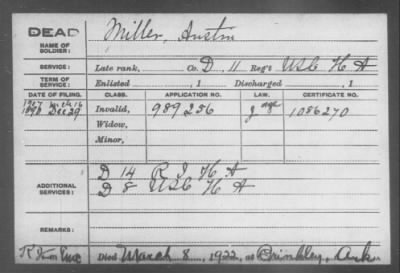 DEAD
NAME OF SOLDIER:
Miller, Austin
SERVICE:
Late rank, Co. D, 11 Reg't USC H A
TERM OF SERVICE:
Enlisted , 1 Discharged , 1
DATE OF FILING. CLASS. APPLICATION NO. LAW. CERTIFICATE NO.
1907 Mch 16
1890 Dec 29 Invalid, 989256 age 1086270
Widow,
Minor,
ADDITIONAL SERVICES:
D 14 R I H A
D 8 USC H A
REMARKS:
Died March 8, 1922, at Brinkley, Ark